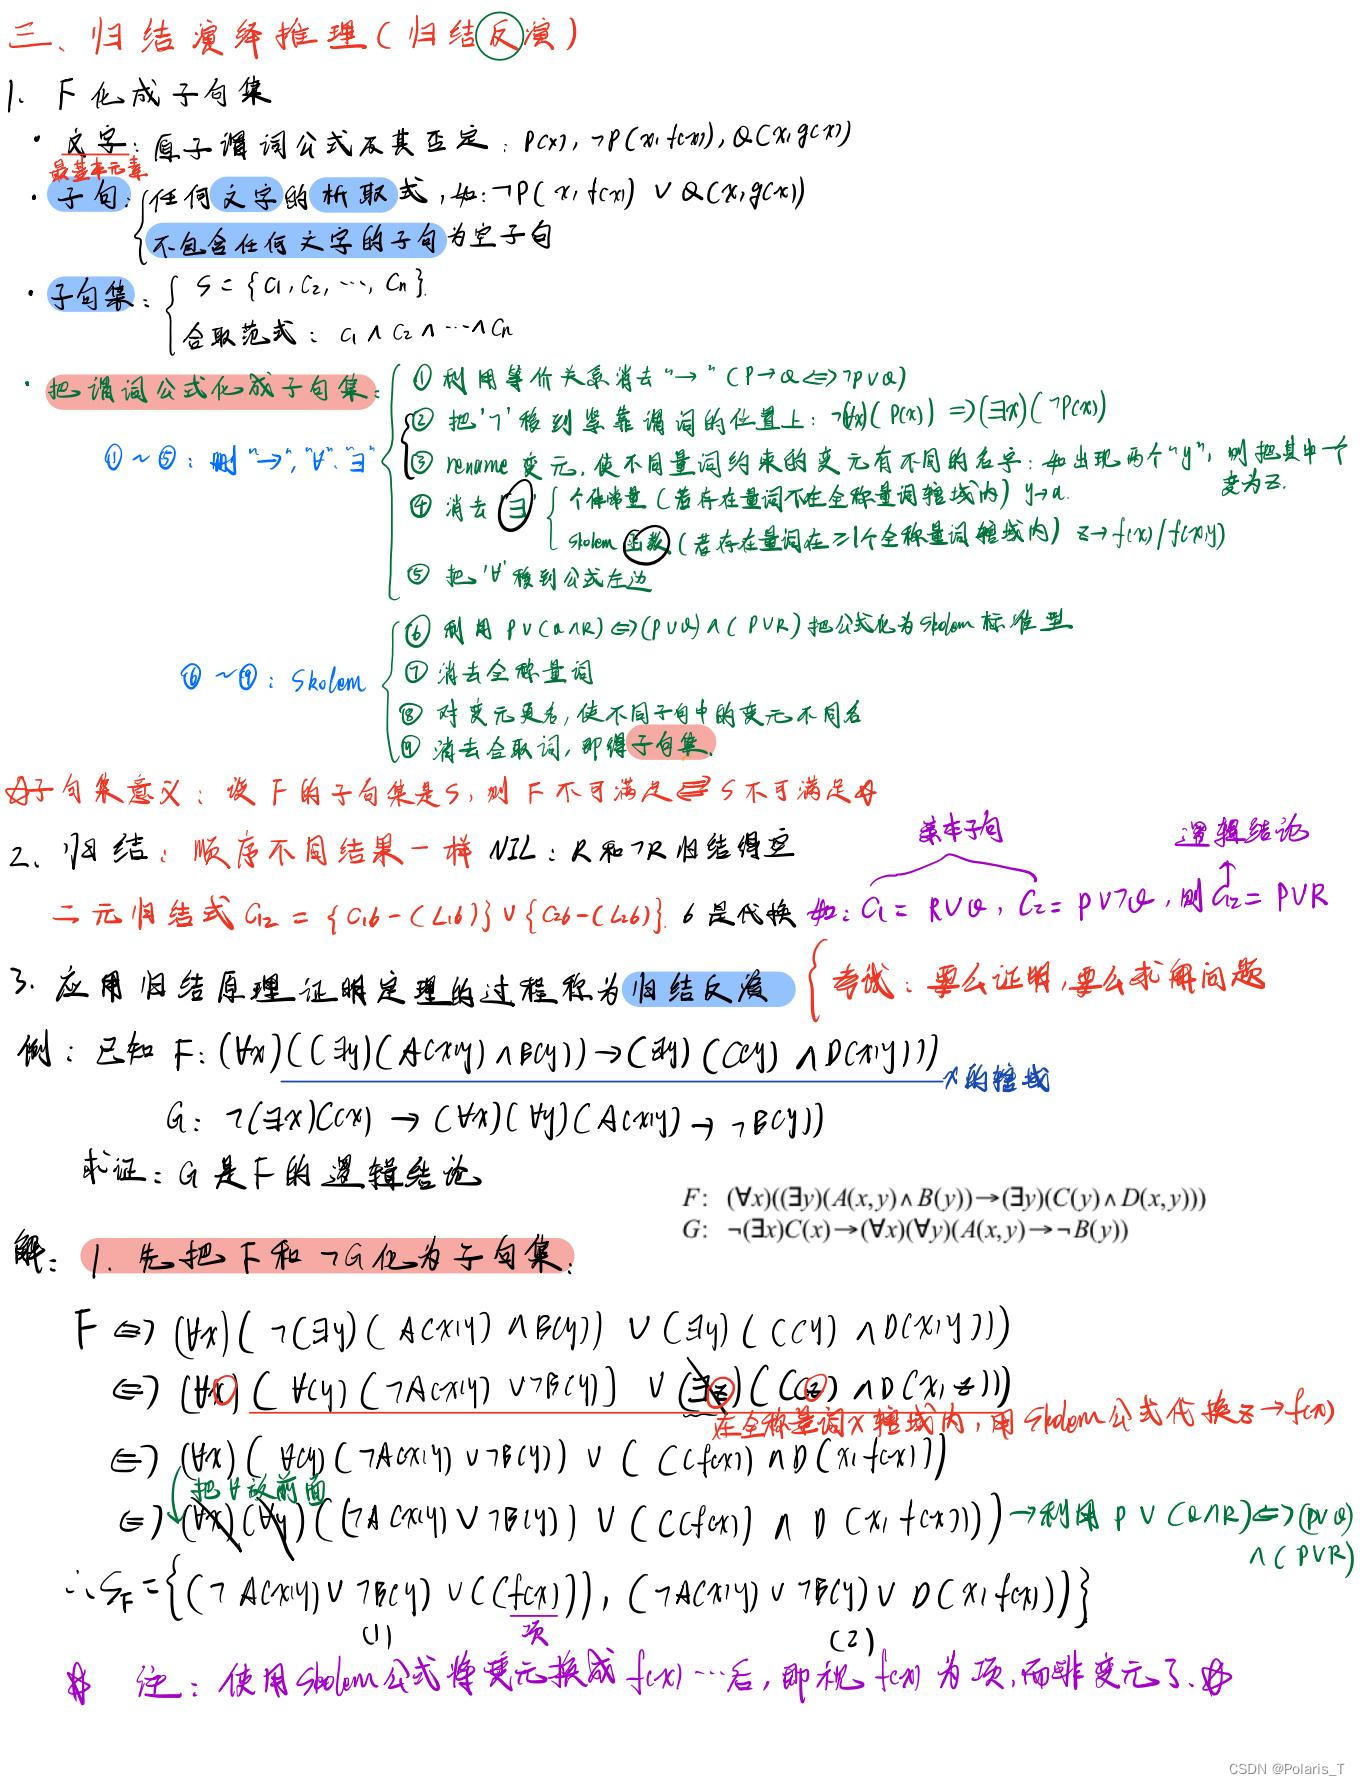 三、归结演绎推理(归结反演)
1. F化成子句集
· 文字:原子谓词公式及其否定:P(x),¬P(x,f(x)),Q(x,g(x))
最基本元素
· 子句:任何文字的析取式,如:¬P(x,f(x)) ∨ Q(x,g(x))
不包含任何文字的子句为空子句
· 子句集: S={C1,C2,…,Cn}.
合取范式:C1∧C2∧…∧Cn
· 把谓词公式化成子句集:
①利用等价关系消去"→"(P→Q⇔¬P∨Q)
②把'¬'移到紧靠谓词的位置上:¬(∀x)(P(x))⇒(∃x)(¬P(x))
①~⑤:删"→","∀","∃"
③rename变元,使不同量词约束的变元有不同的名字:如出现两个"y",则把其中一个
变为z.
④消去'∃' 个体常量(若存在量词不在全称量词辖域内) y→a.
Skolem函数(若存在量词在≥1个全称量词辖域内) z→f(x)/f(x,y)
⑤把'∀'移到公式左边
⑥利用P∨(Q∧R)⇔(P∨Q)∧(P∨R)把公式化为Skolem标准型
⑥~⑨:Skolem
⑦消去全称量词
⑧对变元更名,使不同子句中的变元不同名
⑨消去合取词,即得子句集.
☆子句集意义:设F的子句集是S,则F不可满足⇔S不可满足☆
2、归结:顺序不同结果一样 NIL:R和¬R归结得空
亲本子句
逻辑结论
二元归结式C12={C1б-(L1б)}∪{C2б-(L2б)}. б是代换 如:C1=R∨Q,C2=P∨¬Q,则C12=P∨R
3. 应用归结原理证明定理的过程称为归结反演 考试:要么证明,要么求解问题
例:已知 F:(∀x)((∃y)(A(x,y)∧B(y))→(∃y)(C(y)∧D(x,y)))
x的辖域
G:¬(∃x)C(x)→(∀x)(∀y)(A(x,y)→¬B(y))
求证:G是F的逻辑结论
F: (∀x)((∃y)(A(x,y)∧B(y))→(∃y)(C(y)∧D(x,y)))
G: ¬(∃x)C(x)→(∀x)(∀y)(A(x,y)→¬B(y))
解:1. 先把F和¬G化为子句集:
F⇔(∀x)(¬(∃y)(A(x,y)∧B(y)) ∨ (∃y)(C(y)∧D(x,y)))
⇔(∀x)(∀(y)(¬A(x,y)∨¬B(y)) ∨ (∃z)(C(z)∧D(x,z)))
在全称量词x辖域内,用Skolem公式代换z→f(x)
⇔(∀x)(∀(y)(¬A(x,y)∨¬B(y)) ∨ (C(f(x))∧D(x,f(x))))
把∀放前面
⇔(∀x)(∀y)((¬A(x,y)∨¬B(y)) ∨ (C(f(x))∧D(x,f(x)))) →利用P∨(Q∧R)⇔(P∨Q)
∧(P∨R)
∴SF={(¬A(x,y)∨¬B(y)∨C(f(x))),(¬A(x,y)∨¬B(y)∨D(x,f(x)))}
(1) 项 (2)
☆ 注:使用Skolem公式将变元换成f(x)…后,即视f(x)为项,而非变元了.☆
CSDN @Polaris_T